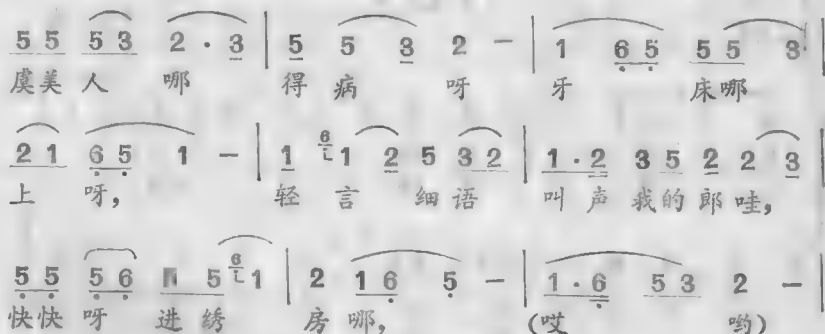 5 5 5 3 2 · 3 | 5 5 3 2 － | 1 6 5 5 5 3 |
虞美人 哪 得病 呀 牙 床哪
2 1 6 5 1 － | 1 6 1 2 5 3 2 | 1 · 2 3 5 2 2 3 |
上 呀， 轻言 细语 叫声我的郎哇，
5 5 5 6 5 6 1 | 2 1 6 5 － | 1 · 6 5 3 2 － |
快快呀 进绣 房哪， (哎 哟)